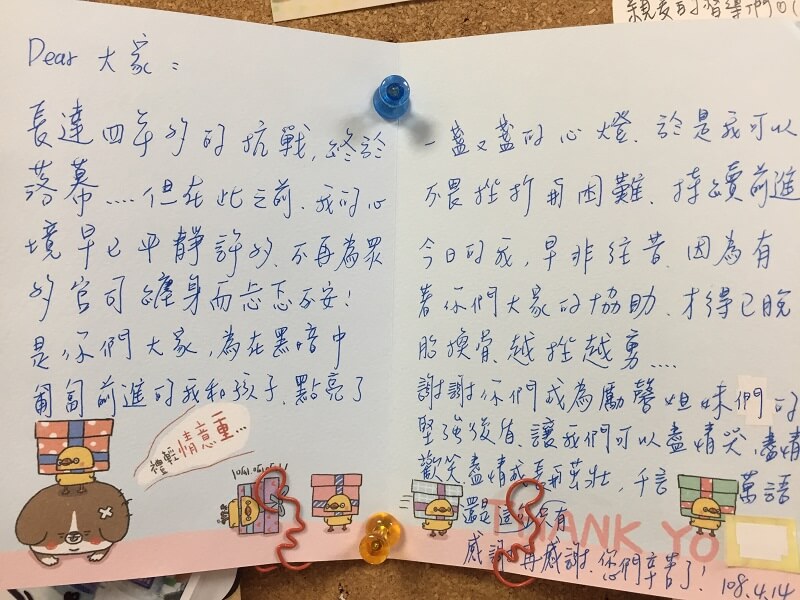 親友的督導們
Dear 大家：
長達四年多的抗戰，終於
落幕....但在此之前、我的心
境早已平靜許多、不再為眾
多官司纏身而忐忑不安！
是你們大家，為在黑暗中
匍匐前進的我和孩子、點亮了
禮輕情意重...
一盞又盞的心燈、於是我可以
不畏挫折與困難、持續前進
今日的我，早非往昔、因為有
著你們大家的協助、才得已脫
胎換骨、越挫越勇....
謝謝你們成為勵馨姐妹們的
堅強後盾、讓我們可以盡情哭,盡情
歡笑盡情成長與茁壯，千言萬語
還是
感謝再感謝、你們辛苦了！
108.4.14
THANK YO